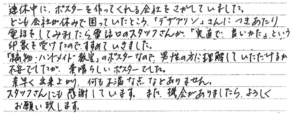 連休中に、ポスターを作ってくれる会社をさがしていました。
どこも会社が休みで困っていたところ、「デザプリン」さんにつきあたり
電話をしてみましたら電話口のスタッフさんが、"実直で良いかた"という
印象を受けたので、すすめていきました。
「織物・ハンドメイド教室」のポスターなので、男性の方に理解していただけるか
不安でしたが、素晴らしいポスターでした。
素早く出来上がり、何もお直な点などありません。
スタッフさんにも感謝しています。また、機会がありましたら、よろしく
お願い致します。